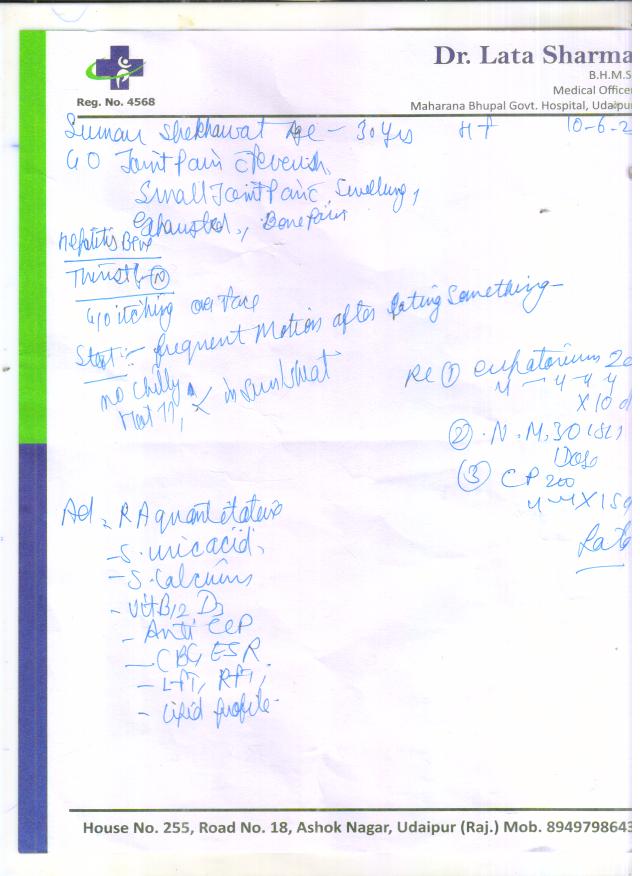 Dr. Lata Sharma
B.H.M.S
Medical Officer
Maharana Bhupal Govt. Hospital, Udaipu
Reg. No. 4568
Suman Shekhawat Age - 30 Yrs H F 10-6-2
C/O Joint Pain c Feverish,
Small Joint Pain c Swelling,
Exhausted, Bone Pain
Hepatitis B
Thirst - N
C/O itching over face
Stat :- frequent Motion after Eating Something-
no chilly
in sun heat
Rx ① eupatorium 20
4 - 4 - 4 - 4
X 10 d
② N.M. 30
1 Dose
③ CP 200
X 15 d
Lata
Ad, RA quantitative
- S. uric acid,
- S. Calcium
- Vit B12 D3
- Anti CCP
- CBC, ESR
- LFT, RFT,
- Lipid profile -
House No. 255, Road No. 18, Ashok Nagar, Udaipur (Raj.) Mob. 8949798643